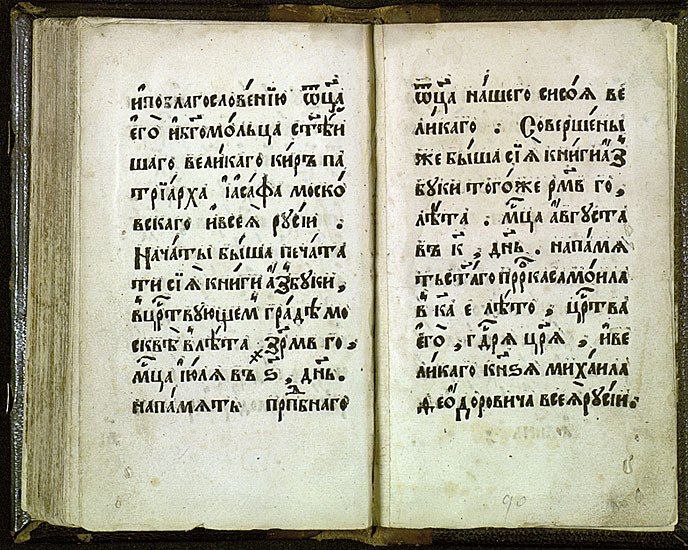 и҆поблагослове́нїю ѿц҃а
є҆го̀ и҆бг҃омо́льца ст҃ѣ́и
шаго вели́каго ки́ръ па
трїа́рха і҆ѡаса́фа моско́
вскаго и҆всеѧ̀ рꙋсі́и .
Нача́ты бы́ша печа́та
ти сїѧ̀ кни́ги а҆́збꙋки ,
в̾ цр҃твꙋющем гра́дѣ мо
сквѣ̀ в̾ лѣ́та . ҂зр҃мв го ,
мц҃а і҆ю́лѧ въ ѕ҃ , дн҃ь .
напа́мѧть прпⷣбнаго
ѿц҃а на́шего сисо́ѧ ве
ли́каго . Соверше́ны
же бы́ша сїѧ̀ кни́ги а҆́з
бꙋки того́же рм҃в го ,
лѣ́та . мц҃а а҆́вгꙋста
въ к҃ , дн҃ь . напа́мѧ
ть ст҃а́го прⷪ҇рка самои́ла
в̾ ка е лѣ́то , црⷭ҇тва
є҆го̀ , гдⷭ҇рѧ цр҃ѧ̀ , и҆ве
ли́каго кн҃ѕѧ михаи́ла
ѳео́доровича всеѧ̀ рꙋсі́и .
90